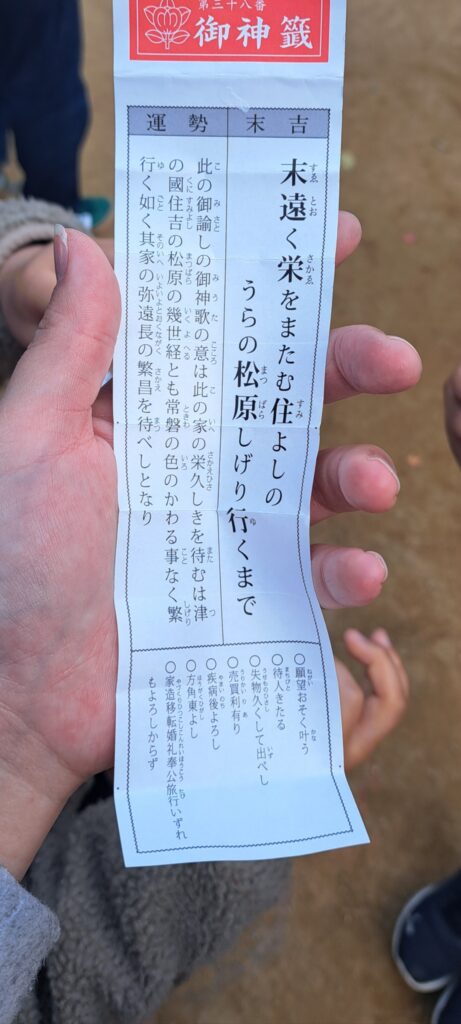 第三十八番
御神籤
末吉
末遠く栄をまたむ住よしの
うらの松原しげり行くまで
運勢
此の御諭しの御神歌の意は此の家の栄久しきを待むは津
の國住吉の松原の幾世経とも常磐の色のかわる事なく繁
行く如く其家の弥遠長の繁昌を待べしとなり
○願望おそく叶う
○待人きたる
○失物久くして出べし
○売買利有り
○疾病後よろし
○方角東よし
○家造移転婚礼奉公旅行いずれ
もよろしからず